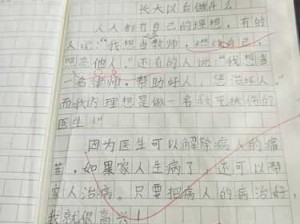 长大以后做什么
人人都有自己的理想，有的
人说："我想当教师，
还有的人说："我想当
一名 帮助好人
而我的理想是做一名 的
医生！"
因为医生可以解除病人的痛
苦，如果家人生病了，还可以帮
家人治病。只要把病人的病治好
我就很高兴！